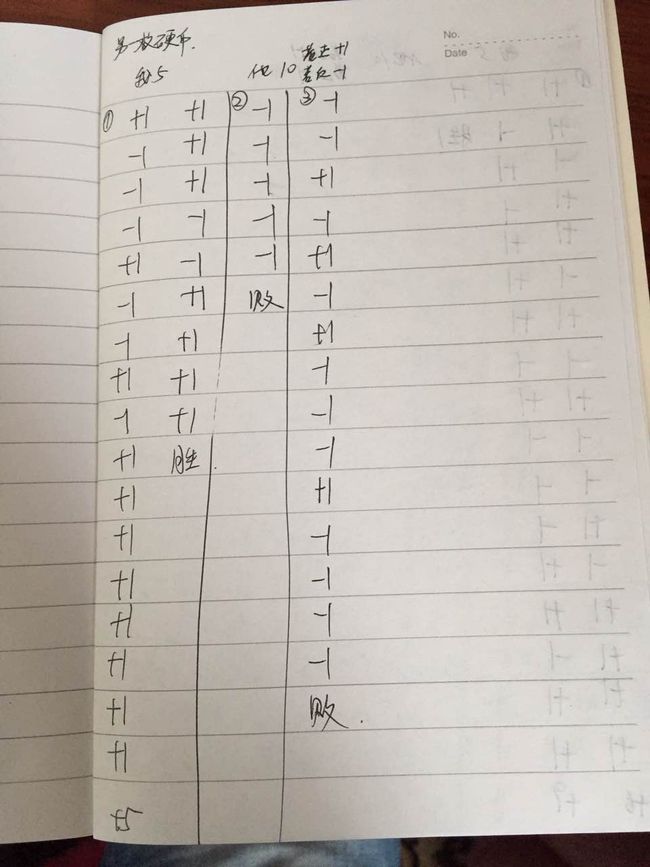 第一枚硬币.
No.
Date
我5
他10
若正+1
若反-1
① +1 +1 ② -1 ③ -1
-1 +1 -1 -1
-1 +1 -1 +1
-1 -1 -1 -1
+1 -1 -1 +1
-1 +1 败 -1
-1 +1 +1
+1 +1 -1
-1 +1 -1
+1 胜 -1
+1 +1
+1 -1
+1 -1
+1 -1
+1 -1
+1 败.
+1
+5